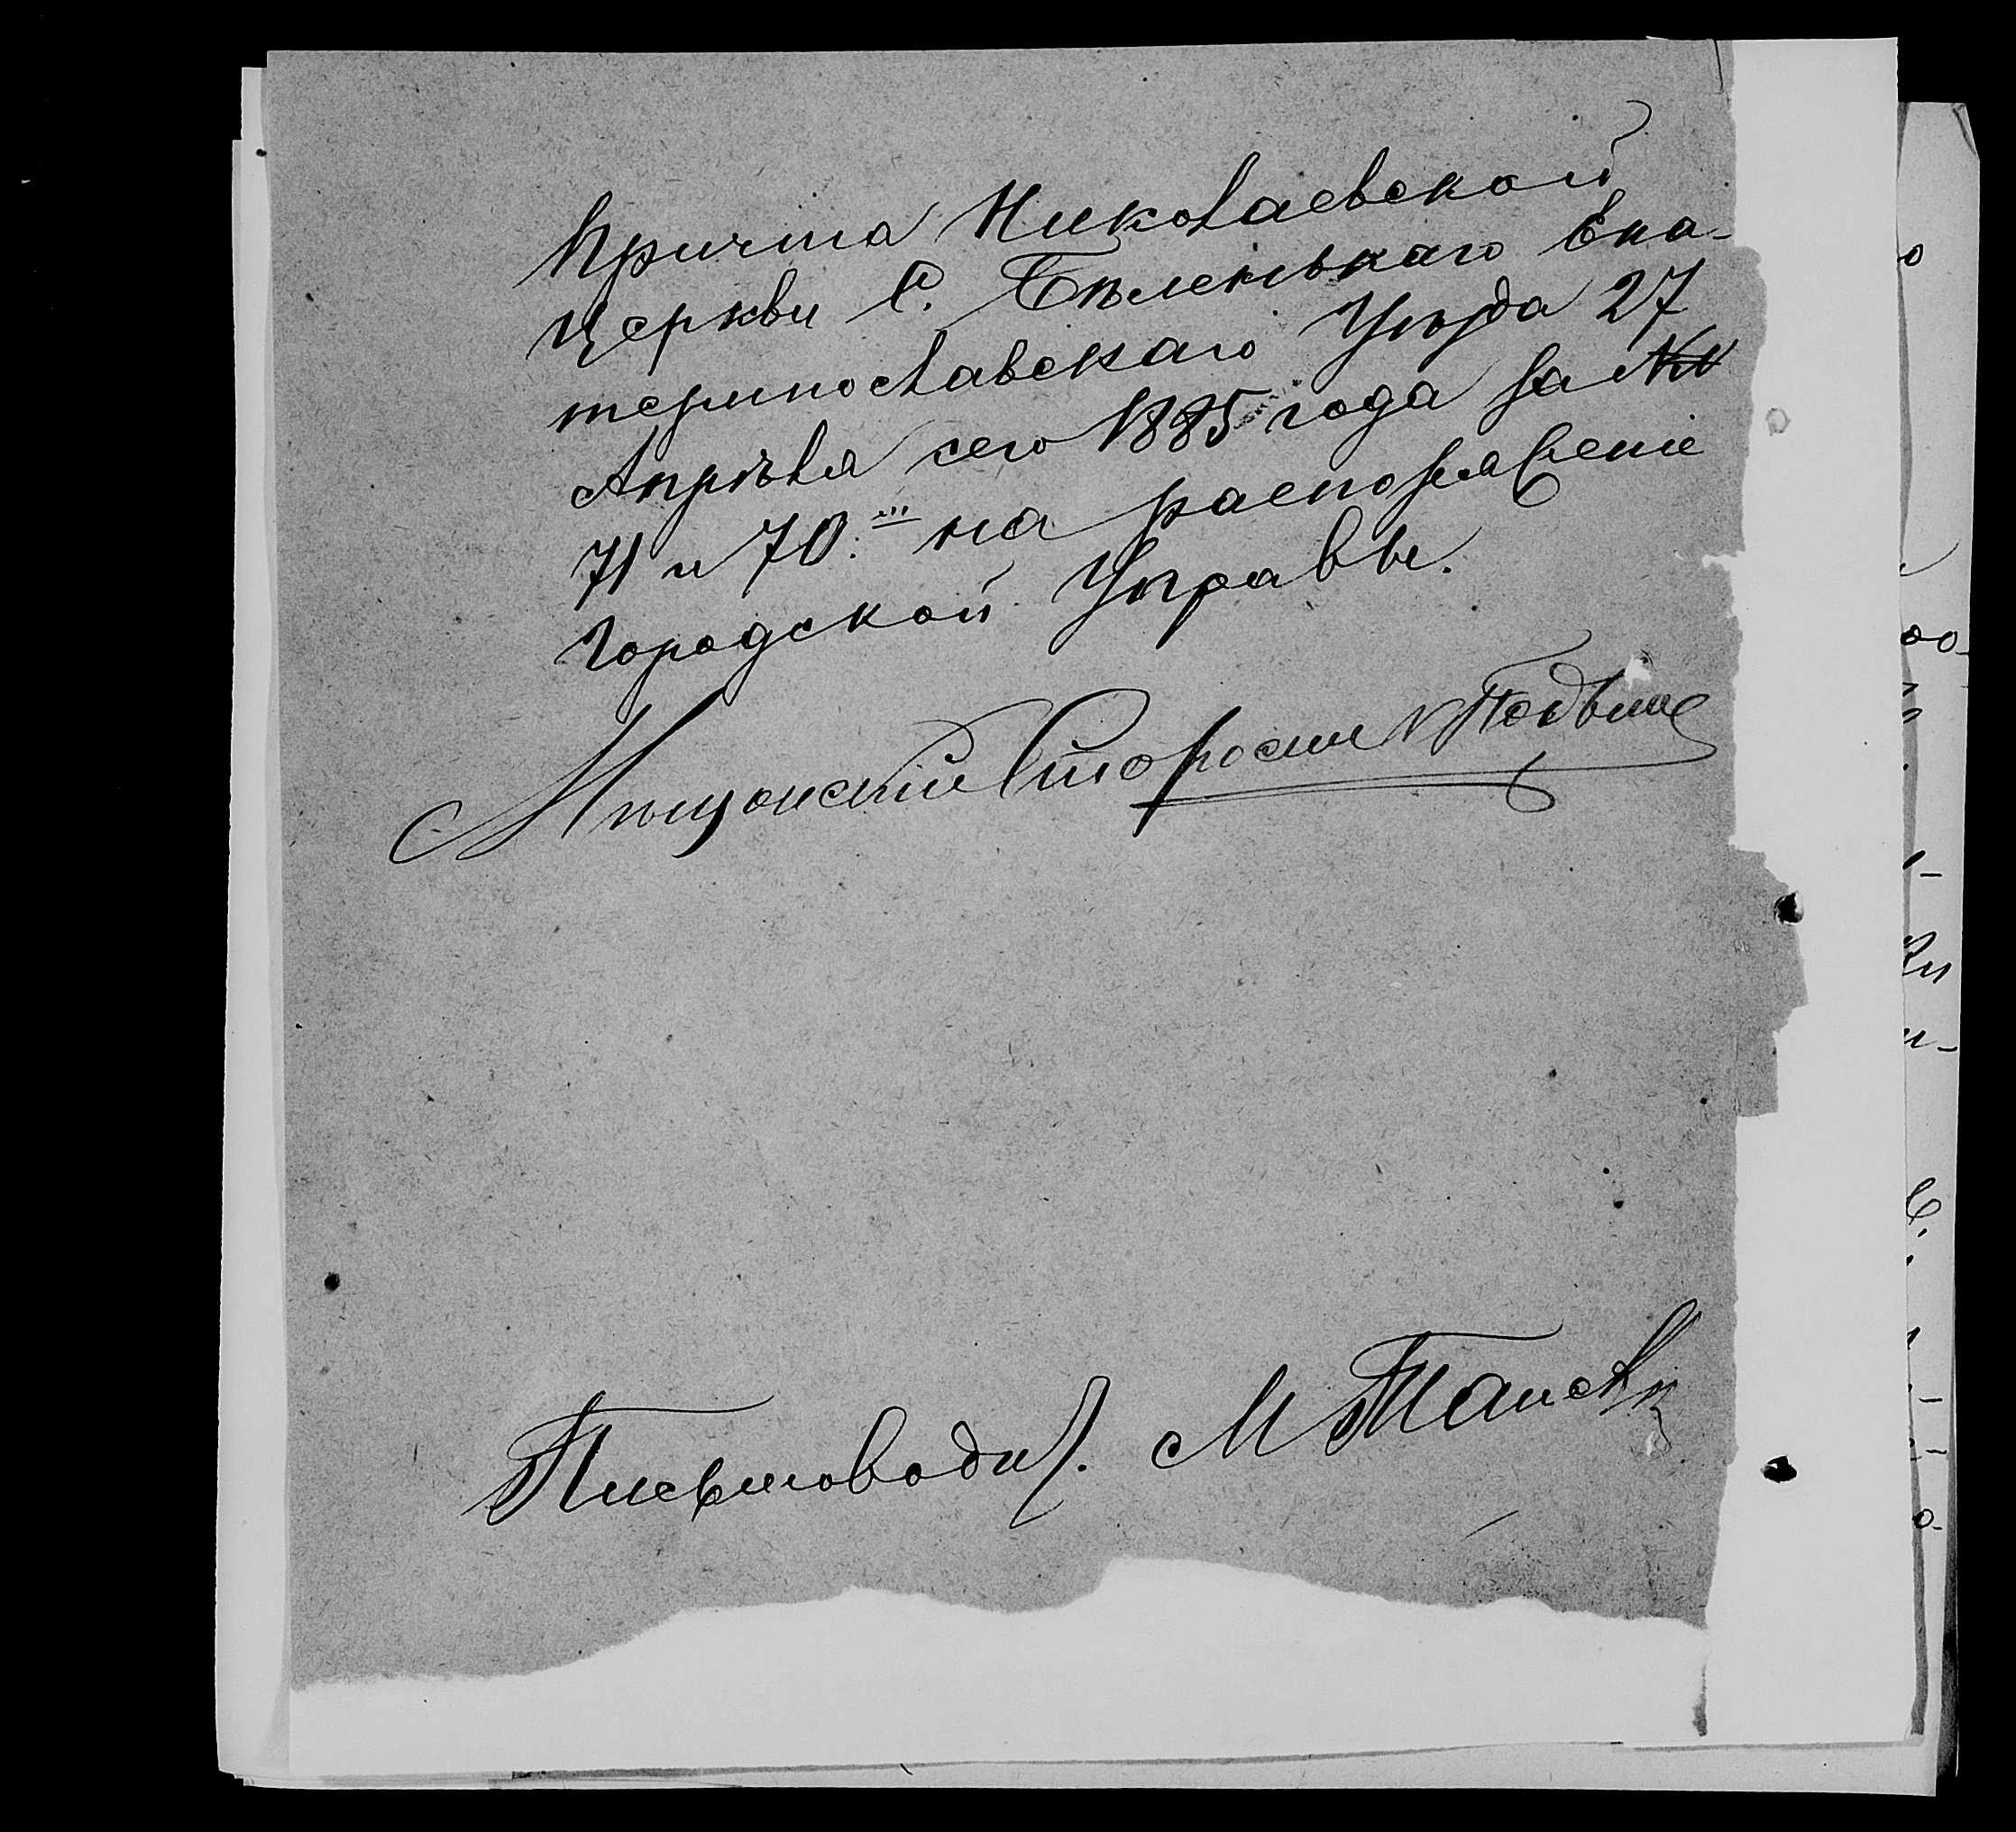 Причта Николаевской
Церкви С. Бѣленькаго Ека-
теринославскаго Уѣзда 27
Апрѣля сего 1885 года за №№
71 и 70.ᵐ на распоряженіе
Городской Управы.
Мѣщанскій Староста
Письмоводи. М